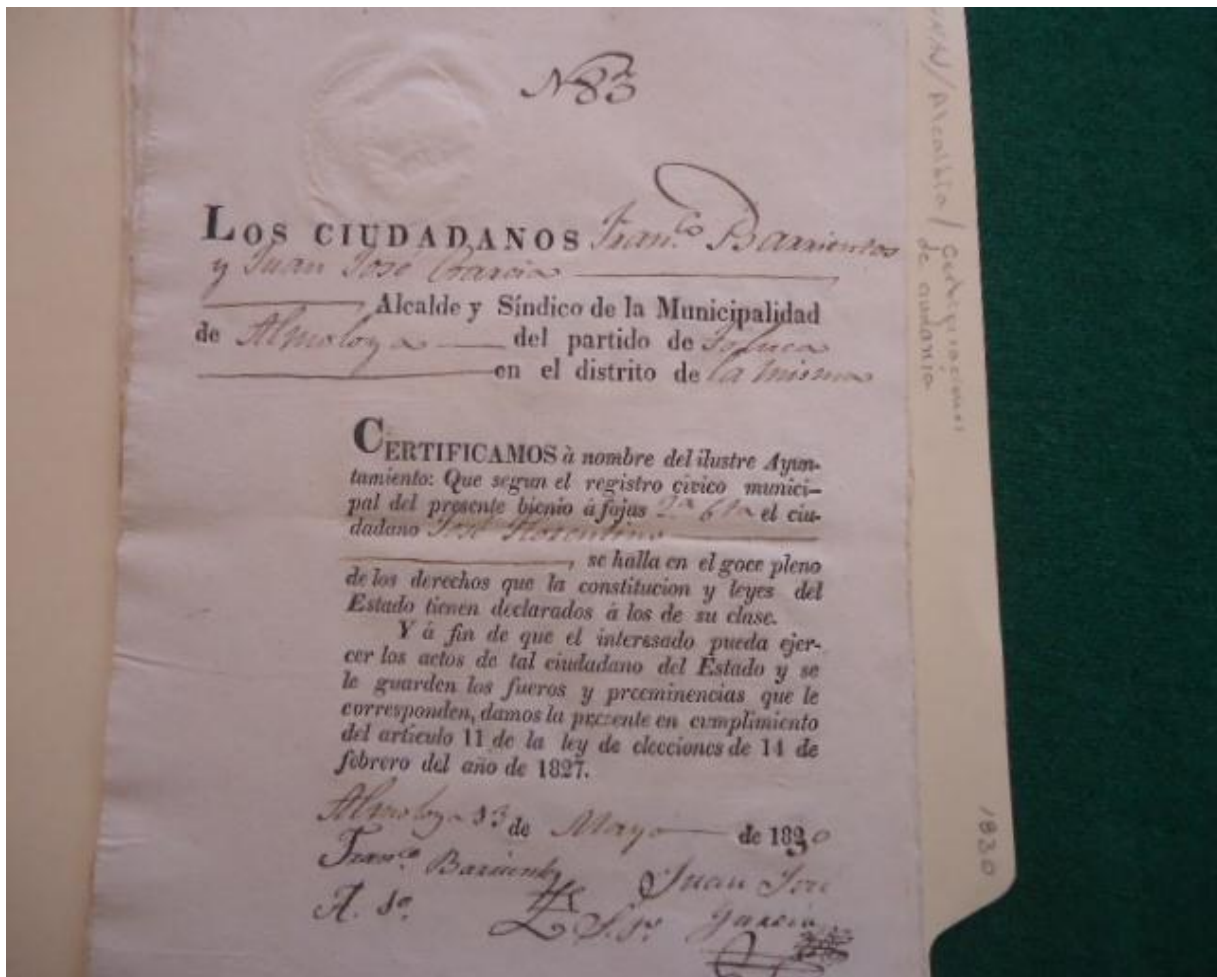 N 83
LOS CIUDADANOS Fran.co Barrientos
y Juan José Garcia
Alcalde y Síndico de la Municipalidad
de Almoloya del partido de Toluca
en el distrito de la misma
CERTIFICAMOS à nombre del ilustre Ayun-
tamiento: Que segun el registro cívico munici-
pal del presente bienio á fojas 2a el ciu-
dadano José Florentino
, se halla en el goce pleno
de los derechos que la constitucion y leyes del
Estado tienen declarados á los de su clase.
Y á fin de que el interesado pueda ejer-
cer los actos de tal ciudadano del Estado y se
le guarden los fueros y preeminencias que le
corresponden, damos la presente en cumplimiento
del artículo 11 de la ley de elecciones de 14 de
febrero del año de 1827.
Almoloya 13 de Mayo de 1830
Fran.co Barrientos
Juan José
Garcia
certificaciones
de ciudadanía
1830